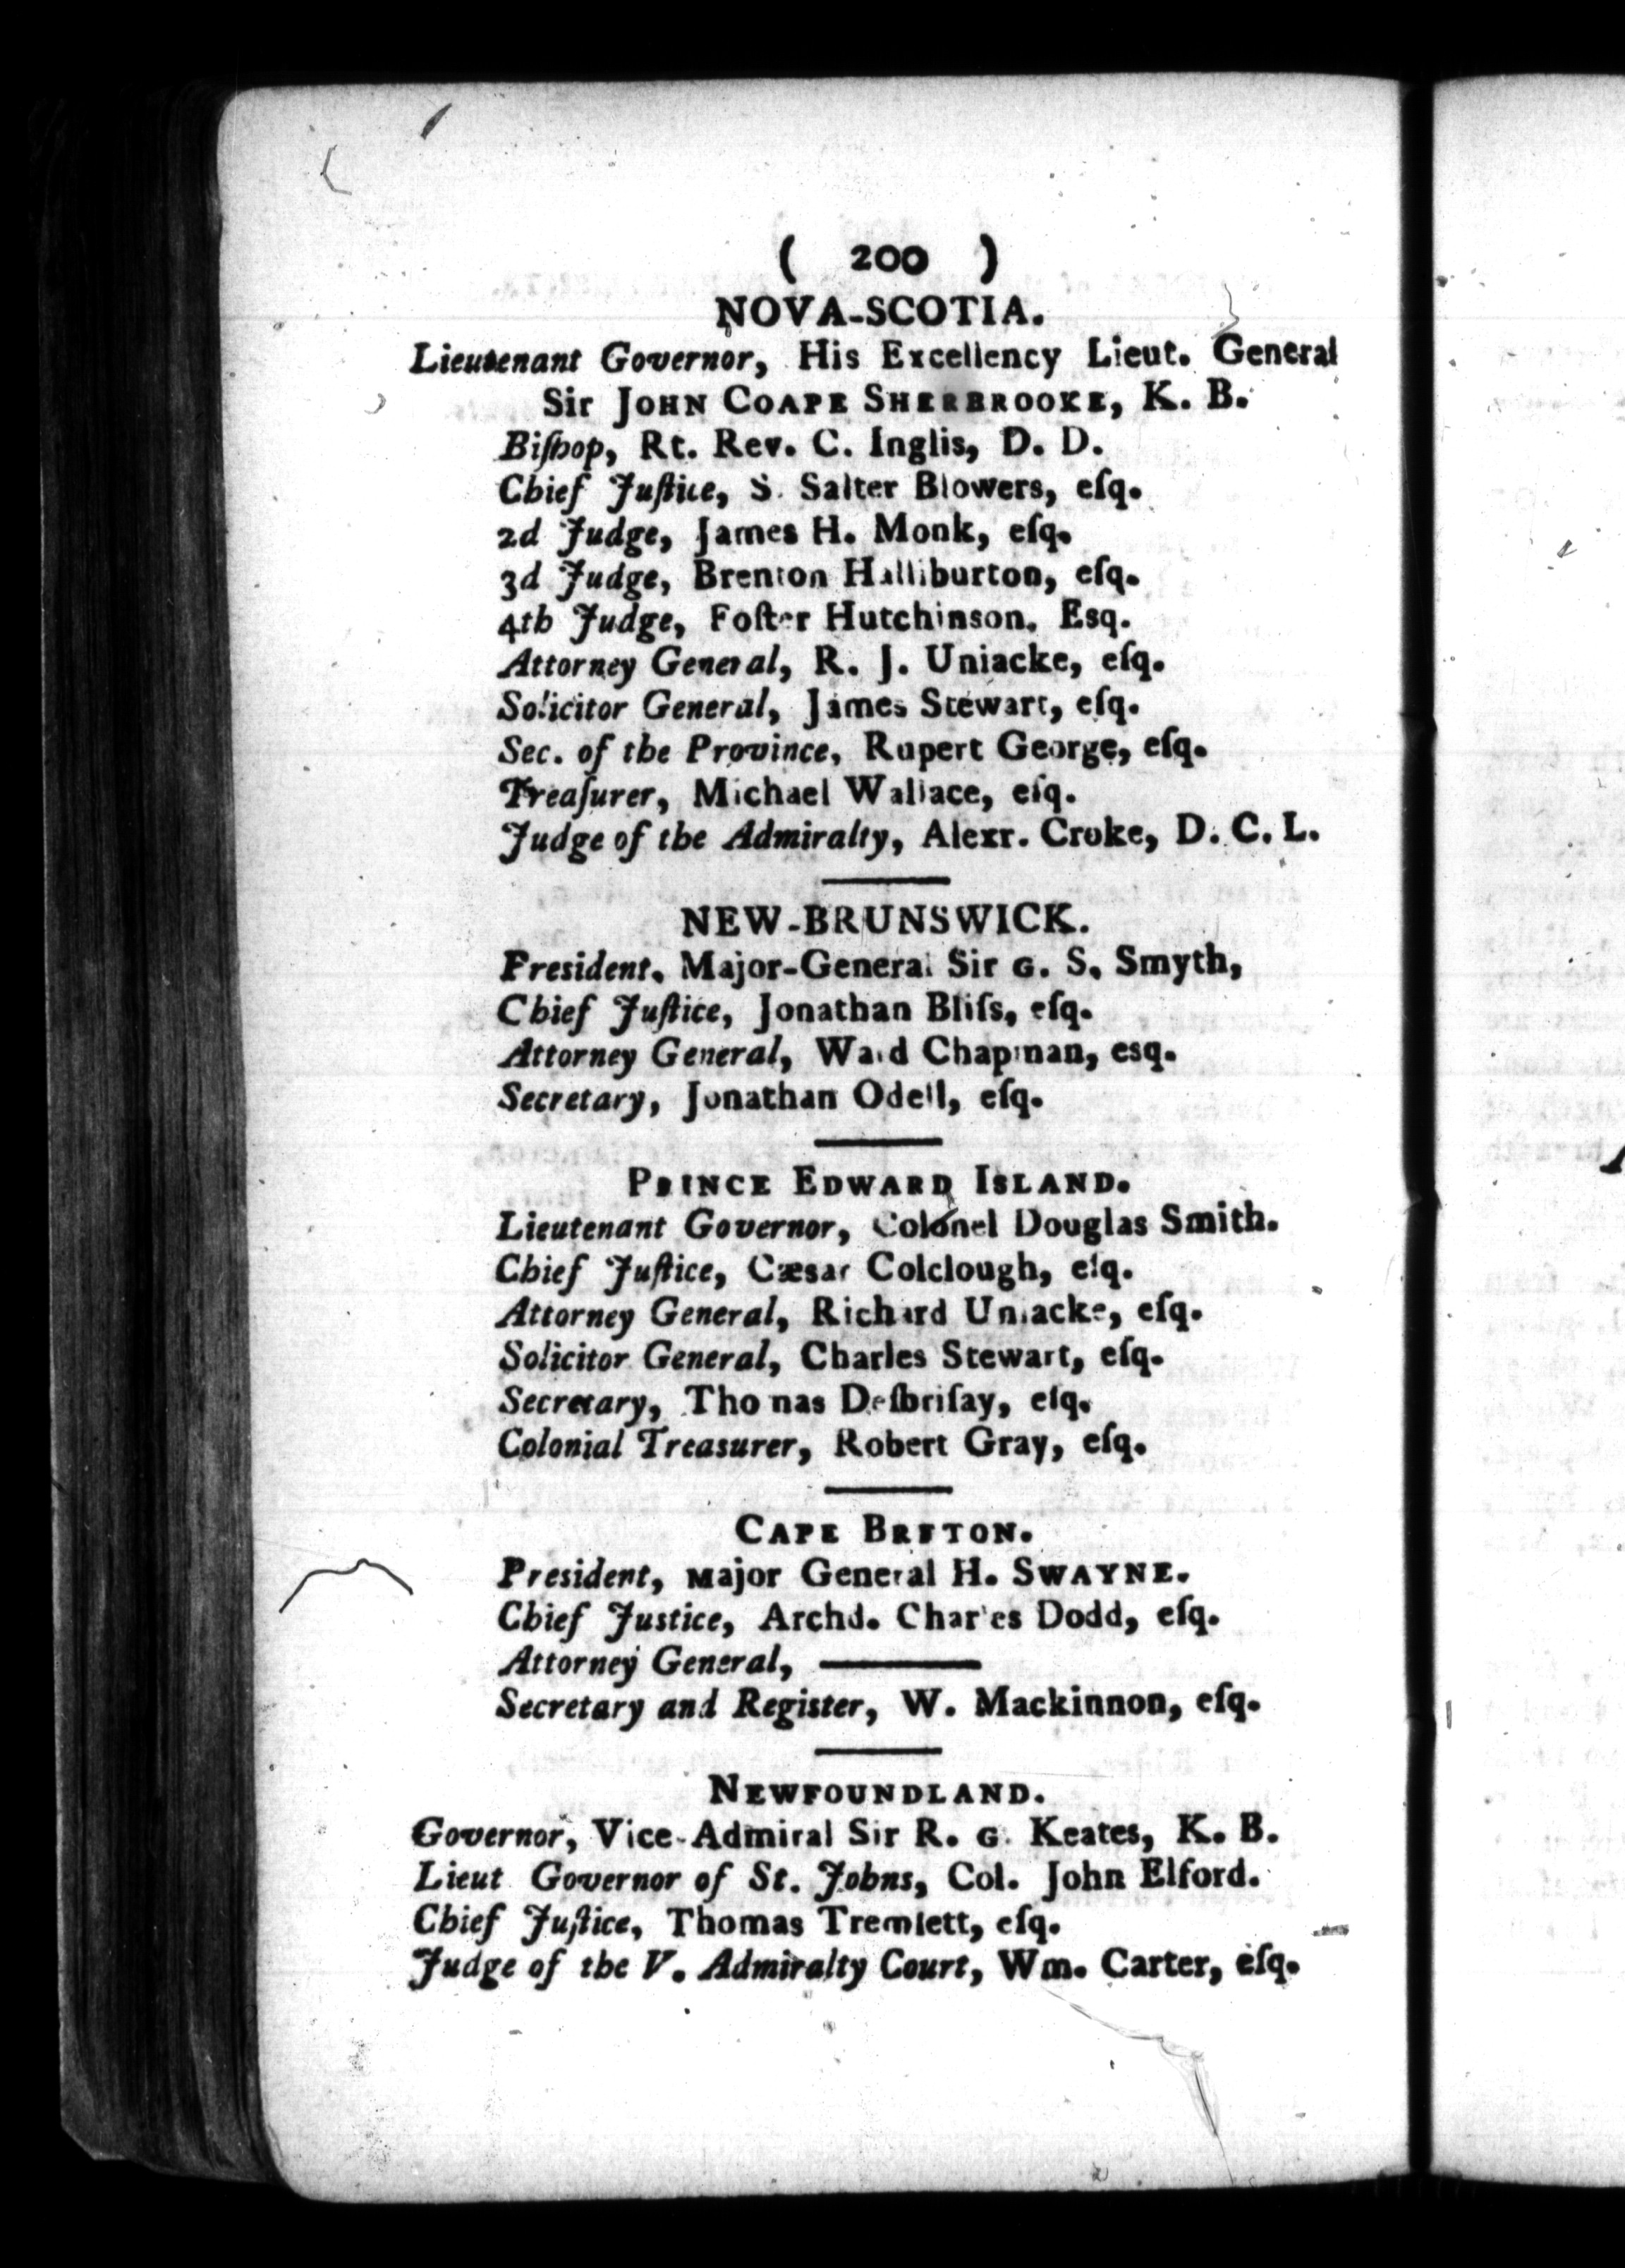 ( 200 )
NOVA-SCOTIA.
Lieutenant Governor, His Excellency Lieut. General
Sir JOHN COAPE SHERBROOKE, K. B.
Biſhop, Rt. Rev. C. Inglis, D. D.
Chief Juſtice, S. Salter Blowers, eſq.
2d Judge, James H. Monk, eſq.
3d Judge, Brenton Halliburton, eſq.
4th Judge, Foſter Hutchinson, Esq.
Attorney General, R. J. Uniacke, eſq.
Solicitor General, James Stewart, eſq.
Sec. of the Province, Rupert George, eſq.
Treaſurer, Michael Wallace, eſq.
Judge of the Admiralty, Alexr. Croke, D. C. L.
NEW-BRUNSWICK.
President, Major-General Sir G. S. Smyth,
Chief Juſtice, Jonathan Bliſs, eſq.
Attorney General, Ward Chapman, esq.
Secretary, Jonathan Odell, eſq.
PRINCE EDWARD ISLAND.
Lieutenant Governor, Colonel Douglas Smith.
Chief Juſtice, Cæsar Colclough, eſq.
Attorney General, Richard Uniacke, eſq.
Solicitor General, Charles Stewart, eſq.
Secretary, Thomas Deſbriſay, eſq.
Colonial Treasurer, Robert Gray, eſq.
CAPE BRETON.
President, Major General H. SWAYNE.
Chief Justice, Archd. Charles Dodd, eſq.
Attorney General, ———
Secretary and Register, W. Mackinnon, eſq.
NEWFOUNDLAND.
Governor, Vice-Admiral Sir R. G. Keates, K. B.
Lieut Governor of St. Johns, Col. John Elford.
Chief Juſtice, Thomas Tremlett, eſq.
Judge of the V. Admiralty Court, Wm. Carter, eſq.